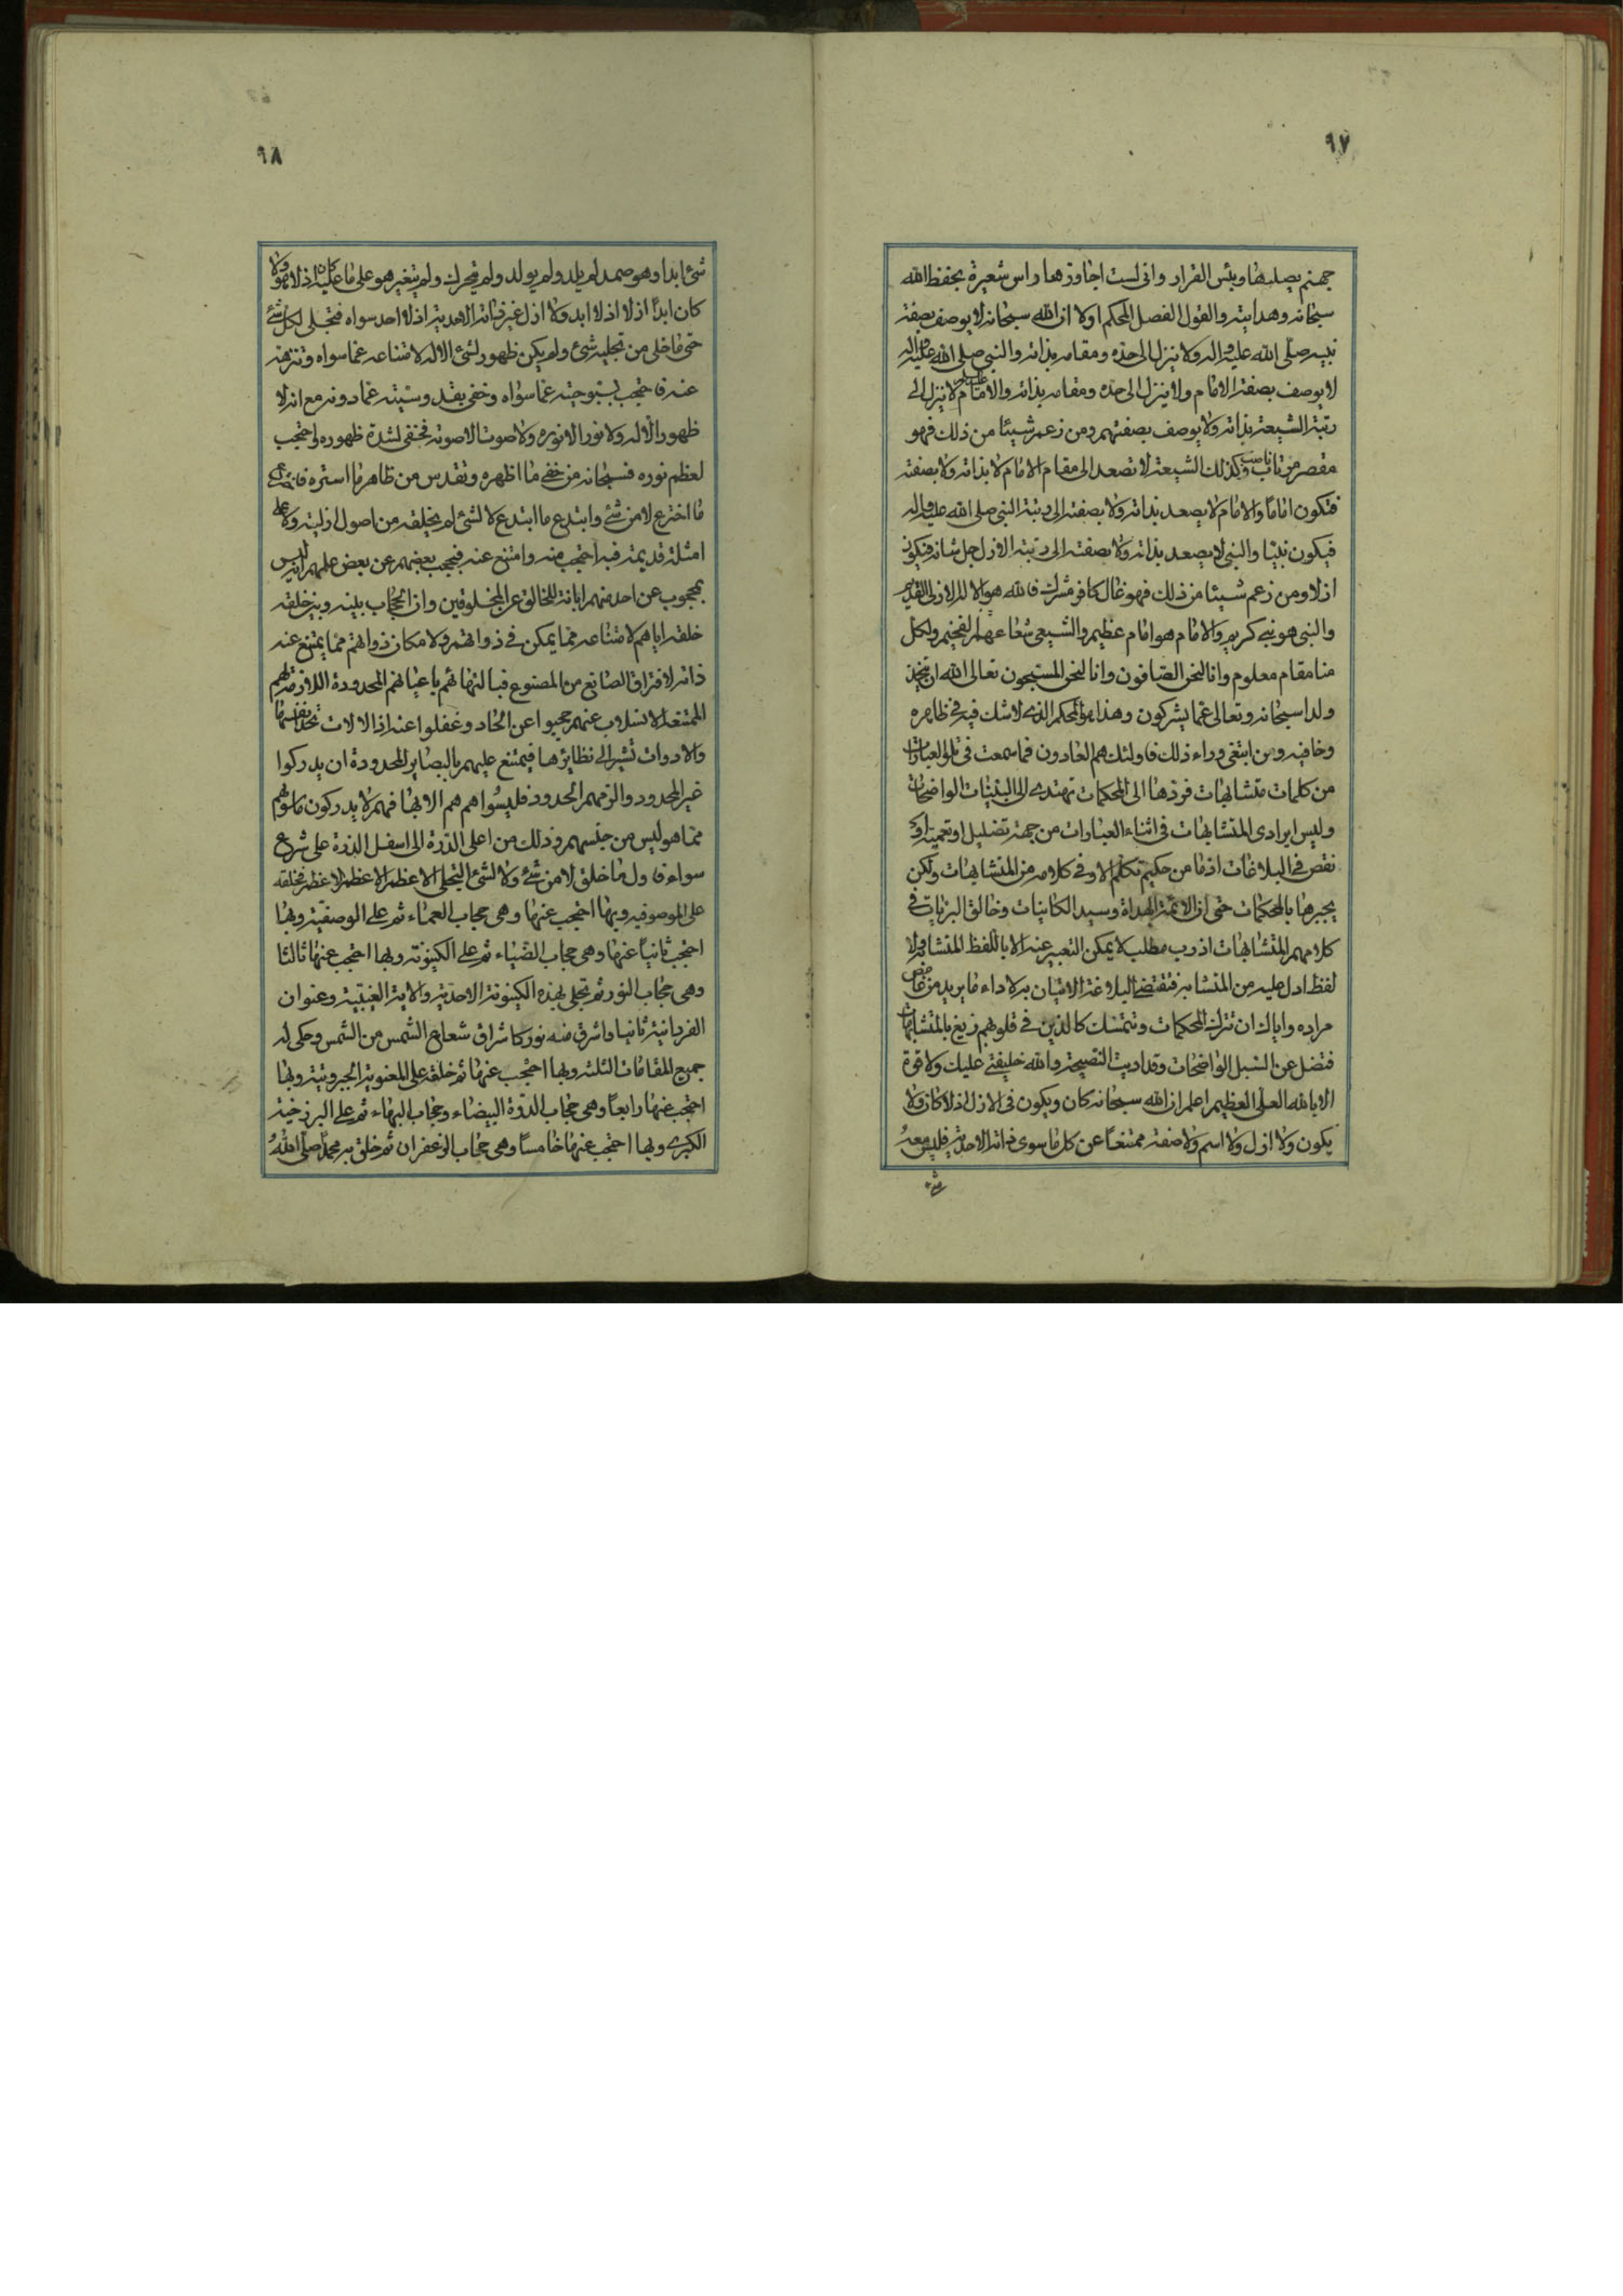 ٩٧
جهنم يصليها وبئس القرار وانى لست اجاوزها راس شعيرة بحفظ الله
سبحانه وهدايته والقول الفصل المحكم اولا ان الله سبحانه لا يوصف بصفة
نبيه صلى الله عليه واله ولا ينزل الى حده ومقامه بذاته والنبى صلى الله عليه واله
لا يوصف بصفة الامام ولا ينزل الى حده ومقامه بذاته والامام عليه السلام لا ينزل الى
رتبة الشيعة بذاته ولا يوصف بصفتهم ومن زعم شيئا من ذلك فهو
مقصر مرتاب ناصب وكذلك الشيعة لا تصعد الى مقام الامام لا بذاته ولا بصفته
فتكون اماما والامام لا يصعد بذاته ولا بصفته الى رتبة النبى صلى الله عليه واله
فيكون نبيا والنبى لا يصعد بذاته ولا بصفته الى رتبة الازل جل شانه فيكون
ازلا ومن زعم شيئا من ذلك فهو غال كافر مشرك فالله هو الاله الازلى القديم
والنبى هو نبى كريم والامام هو امام عظيم والشيعى شعاعهما لفخيم ولكل
منا مقام معلوم وانا لنحن الصافون وانا لنحن المسبحون تعالى الله ان يتخذ
ولدا سبحانه وتعالى عما يشركون وهذا هو المحكم الذى لا شك فيه فى ظاهره
وخافيه ومن ابتغى وراء ذلك فاولئك هم العادون فما سمعت فى تلو العبارات
من كلمات متشابهات فردها الى المحكمات تهتدى الى البينات الواضحات
وليس ايرادى المتشابهات فى اثناء العبارات من جهة تضليل او تعمية او
نقص فى البلاغات اذ ما من حكيم تكلم الا وفى كلامه من المتشابهات ولكن
يجبرها بالمحكمات حتى ان الائمة الهداة وسيد الكاينات وخالق البريات فى
كلامهم المتشابهات اذ رب مطلب لا يمكن التعبير عنه الا باللفظ المتشابه ولا
لفظ ادل عليه من المتشابه فتقتضى البلاغة الاتيان به لاداء ما يريد من غامض
مراده واياك ان تترك المحكمات وتتمسك كالذين فى قلوبهم زيغ بالمتشابهات
فتضل عن السبل الواضحات وقد اديت النصيحة والله خليفتى عليك ولا قوة
الا بالله العلى العظيم اعلم ان الله سبحانه كان ويكون فى الازل اذ لا كان ولا
يكون ولا ازل ولا اسم ولا صفة ممتنعا عن كل ما سوى ذاته الاحدية فليس معه
شئ
٩٨
شئ ابدا وهو صمد لم يلد ولم يولد ولم يتحرك ولم يتغير هو على ما عليه كان اذ لا هو ولا
كان ابدا ازلا اذ لا ابد ولا ازل غير ذاته الاحدية اذ لا احد سواه فتجلى لكل شئ
حتى ما خلى من تجليه شئ ولم يكن ظهور لشئ الا له لامتناعه عما سواه وتنزهه
عنه فاحتجب بسبوحيته عما سواه وخفى بقدوسيته عما دونه مع انه لا
ظهور الا له ولا نور الا نوره ولا صوت الا صوته فخفى لشدة ظهوره واحتجب
لعظم نوره فسبحانه من خفى ما اظهره وتقدس من ظاهر ما استره فاخترع
ما اخترع لا من شئ وابتدع ما ابتدع لا لشئ لم يخلقه من اصول ازلية ولا على
امثلة قديمة فبه احتجب منه وامتنع عنه فحجب بعضهم عن بعض علمهم انه ليس
بمحجوب عن احد منهم ابانة للخالق عن المخلوقين وان الحجاب بينه وبين خلقه
خلقه اياهم لامتناعه مما يمكن فى ذواتهم ولامكان ذواتهم مما يمتنع عنه
ذاته لافتراق الصانع من المصنوع فبالتزامهم باعيانهم المحدودة اللازمة لهم
الممتنعة الانسلاب عنهم حجبوا عن اتحاد وغفلوا عنه اذ الالات تحد انفسها
والادوات تشير الى نظايرها فيمتنع عليهم بالبصاير المحدودة ان يدركوا
غير المحدود والزمهم الحدود فليسوا هم هم الا بها فهم لا يدركون ما سويهم
مما هو ليس من جنسهم وذلك من اعلى الذرة الى اسفل الذرة على شرع
سواء فاول ما خلق لا من شئ ولا لشئ التجلى الاعظم الاعظم الاعظم فخلقه
على الموصوفية وبها احتجب عنها وهى حجاب العماء ثم على الوصفية وبها
احتجب ثانيا عنها وهى حجاب الضياء ثم على الكينونة وبها احتجب عنها ثالثا
وهى حجاب النور ثم تجلى بهذه الكينونة الاحدية والاية الغيبية وعنوان
الفردانية ثانيا واشرق منه نور كاشراق شعاع الشمس من الشمس وحكى له
جميع المقامات الثلثة وبها احتجب عنها ثم خلقه على المعنوية الجبروتية وبها
احتجب عنها رابعا وهى حجاب الدرة البيضاء وحجاب البهاء ثم على البرزخية
الكبرى وبها احتجب عنها خامسا وهى حجاب الزعفران ثم خلق به محمدا صلى الله